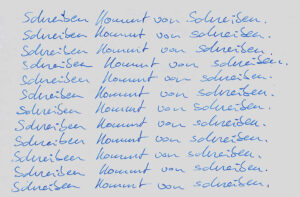 Schreiben kommt von Schreiben.
Schreiben kommt von schreiben.
Schreiben kommt von schreiben.
Schreiben kommt von schreiben.
Schreiben kommt von schreiben.
Schreiben kommt von schreiben.
Schreiben kommt von schreiben.
Schreiben kommt von schreiben.
Schreiben kommt von schreiben.
Schreiben kommt von schreiben.
Schreiben kommt von schreiben.
Schreiben kommt von schreiben.